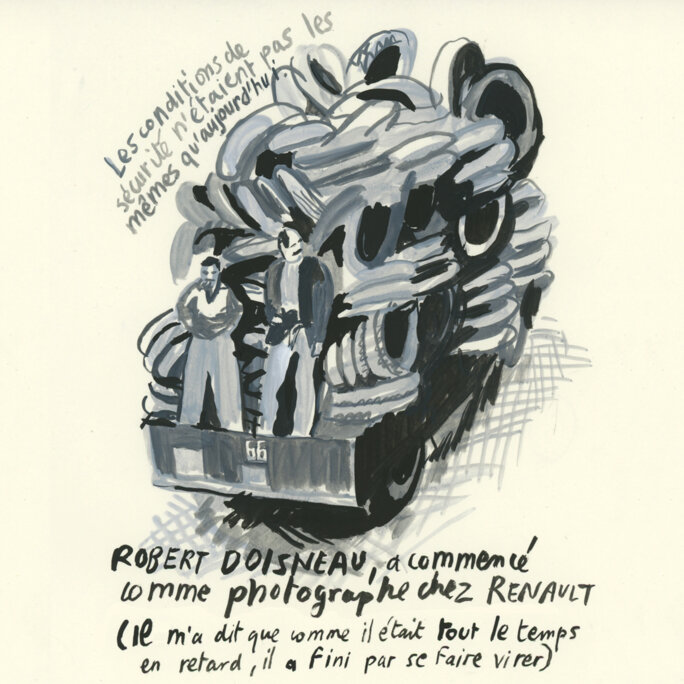 Les conditions de
sécurité n'étaient pas les
mêmes qu'aujourd'hui.
66
ROBERT DOISNEAU, a commencé
comme photographe chez RENAULT
(il m'a dit que comme il était tout le temps
en retard, il a fini par se faire virer)